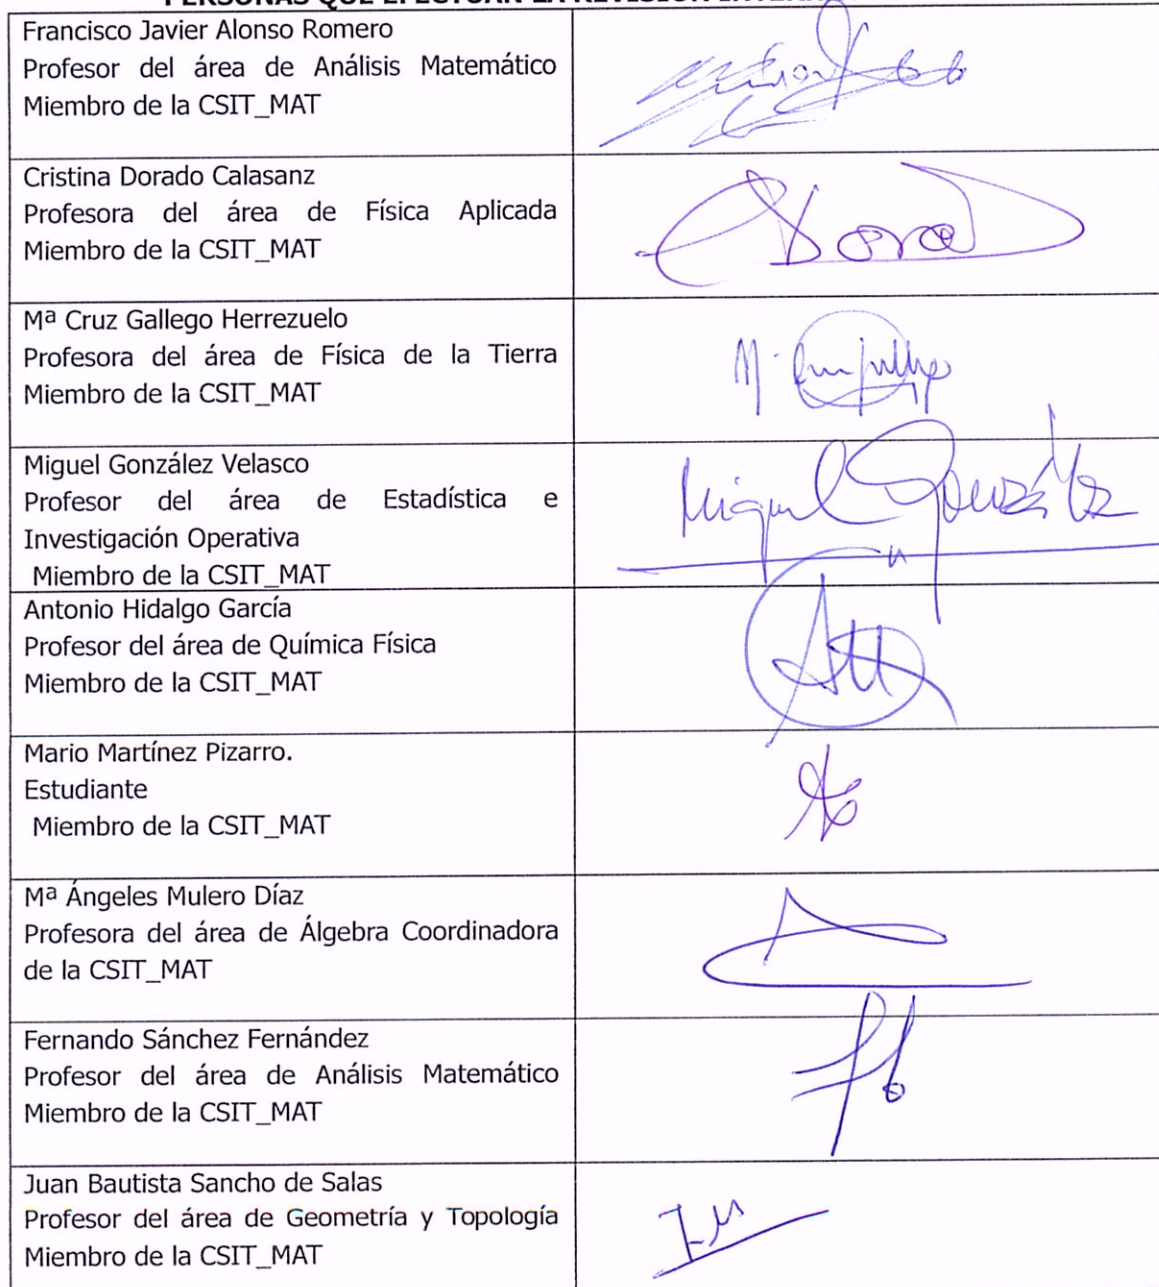 PERSONAS QUE EFECTÚAN LA REVISIÓN
Francisco Javier Alonso Romero
Profesor del área de Análisis Matemático
Miembro de la CSIT_MAT
Cristina Dorado Calasanz
Profesora del área de Física Aplicada
Miembro de la CSIT_MAT
Dorad
Mª Cruz Gallego Herrezuelo
Profesora del área de Física de la Tierra
Miembro de la CSIT_MAT
Miguel González Velasco
Profesor del área de Estadística e
Investigación Operativa
Miembro de la CSIT_MAT
Miguel González
Antonio Hidalgo García
Profesor del área de Química Física
Miembro de la CSIT_MAT
Mario Martínez Pizarro.
Estudiante
Miembro de la CSIT_MAT
Mª Ángeles Mulero Díaz
Profesora del área de Álgebra Coordinadora
de la CSIT_MAT
Fernando Sánchez Fernández
Profesor del área de Análisis Matemático
Miembro de la CSIT_MAT
Juan Bautista Sancho de Salas
Profesor del área de Geometría y Topología
Miembro de la CSIT_MAT